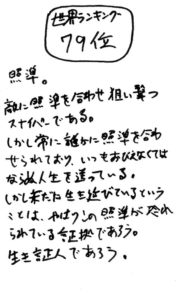 世界ランキング
79位
照準。
敵に照準を合わせ狙い撃つ
スナイパーである。
しかし常に誰かに照準を合わ
せられており、いつもおびえなくては
な
人生を送っている。
しかし未だに生き延びているという
ことは、やはりこの照準が恐れ
られている証拠であろう。
生き証人であろう。